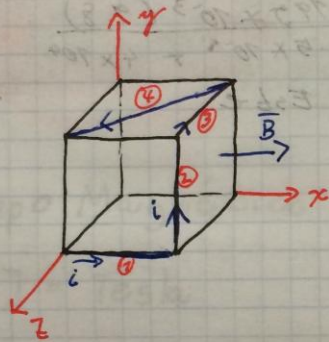 y
④
③
B
②
i
x
i
①
z